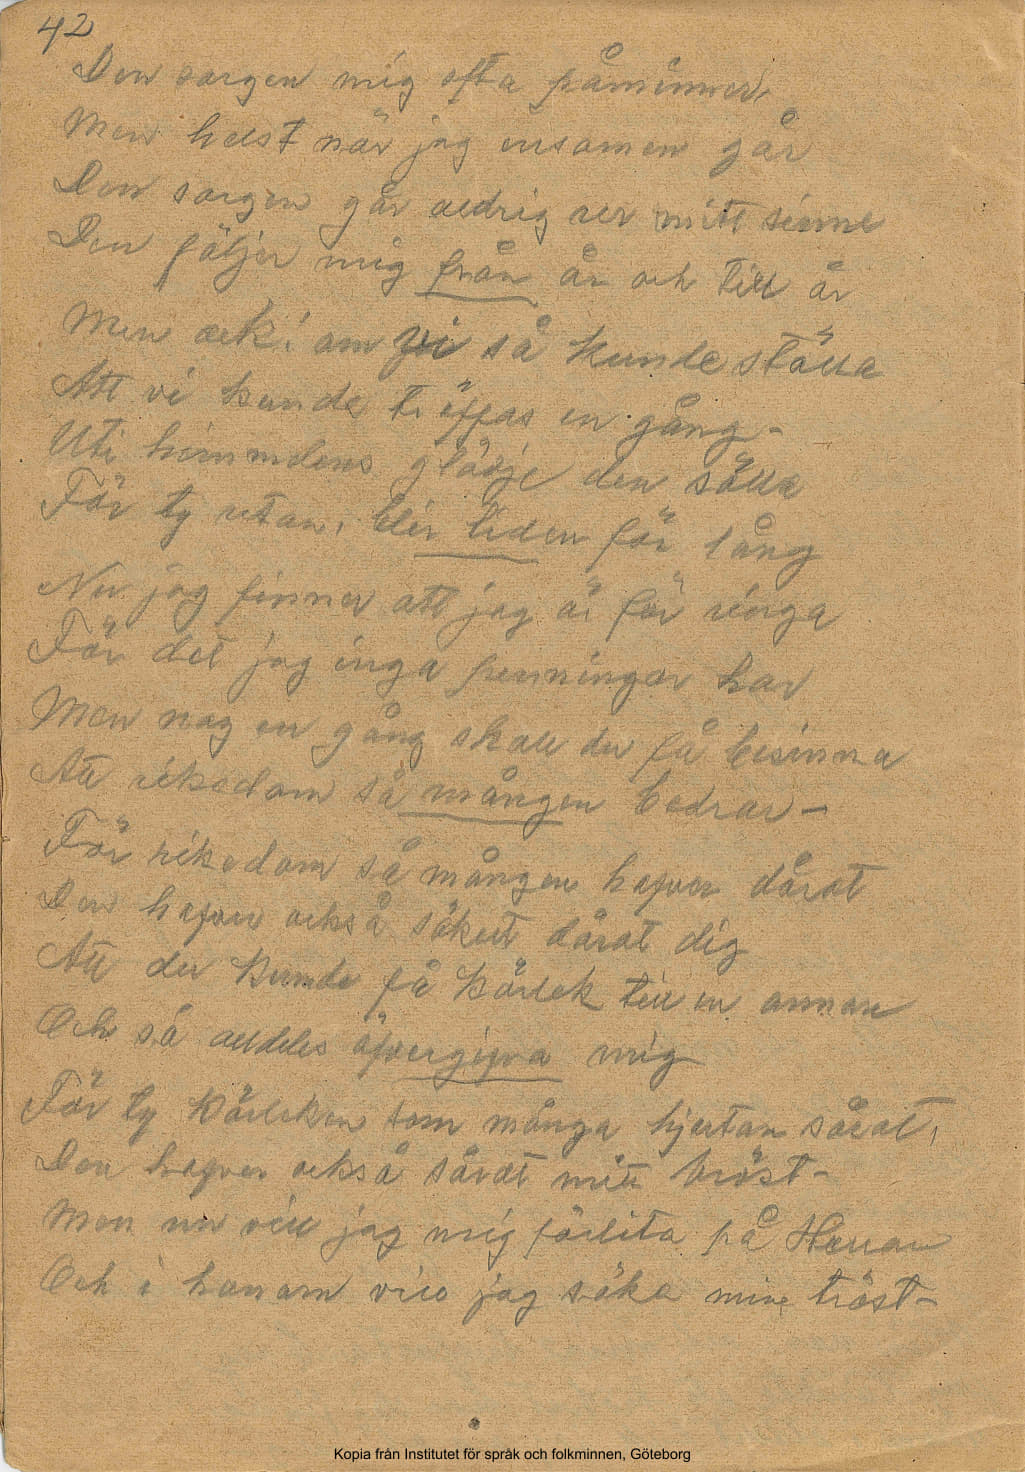 42
Den sorgen mig ofta påminner,
Men helst när jag ensamen går
Den sorgen går aldrig ur mitt sinne
Den följer mig från år och till år
Men ack! om vi så kunde ställa
Att vi kunde träffas en gång -
Uti himmelens glädje den sälla
För ty utan, blir tiden för lång
Nu jag finner att jag är för ringa
För det jag inga penningar har
Men nog en gång skall du få besinna
Att rikedom så mången bedrar -
För rikedom så mången hafver dårat
Den hafver också säkert dårat dig
Att du kunde få kärlek till en annan
Och så alldeles öfvergifva mig
För ty kärleken som många hjertan sårat,
Den hafver också sårat mitt bröst -
Men nu vill jag mig förlita på Herran
Och i honom vill jag söka min tröst -
Kopia från Institutet för språk och folkminnen, Göteborg